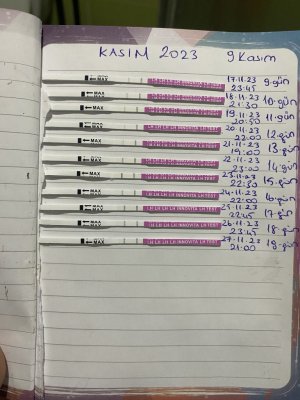 KASIM 2023 9 Kasım
MAX LH LH LH LH INNOVITA LH TEST 17.11.23 9.gün
23:45
MAX LH LH LH LH INNOVITA LH TEST 18.11.23 10.gün
21:30
MAX LH LH LH LH INNOVITA LH TEST 19.11.23 11.gün
20:50
MAX LH LH LH LH INNOVITA LH TEST 20.11.23 12.gün
22:00
MAX LH LH LH LH INNOVITA LH TEST 21.11.23 13.gün
19:00
MAX LH LH LH LH INNOVITA LH TEST 22.11.23 14.gün
23:00
MAX LH LH LH LH INNOVITA LH TEST 23.11.23 15.gün
22:30
MAX LH LH LH LH INNOVITA LH TEST 24.11.23 16.gün
22:00
MAX LH LH LH LH INNOVITA LH TEST 25.11.23 17.gün
22:45
MAX LH LH LH LH INNOVITA LH TEST 26.11.23 18.gün
23:45
MAX LH LH LH LH INNOVITA LH TEST 27.11.23 19.gün
21:00